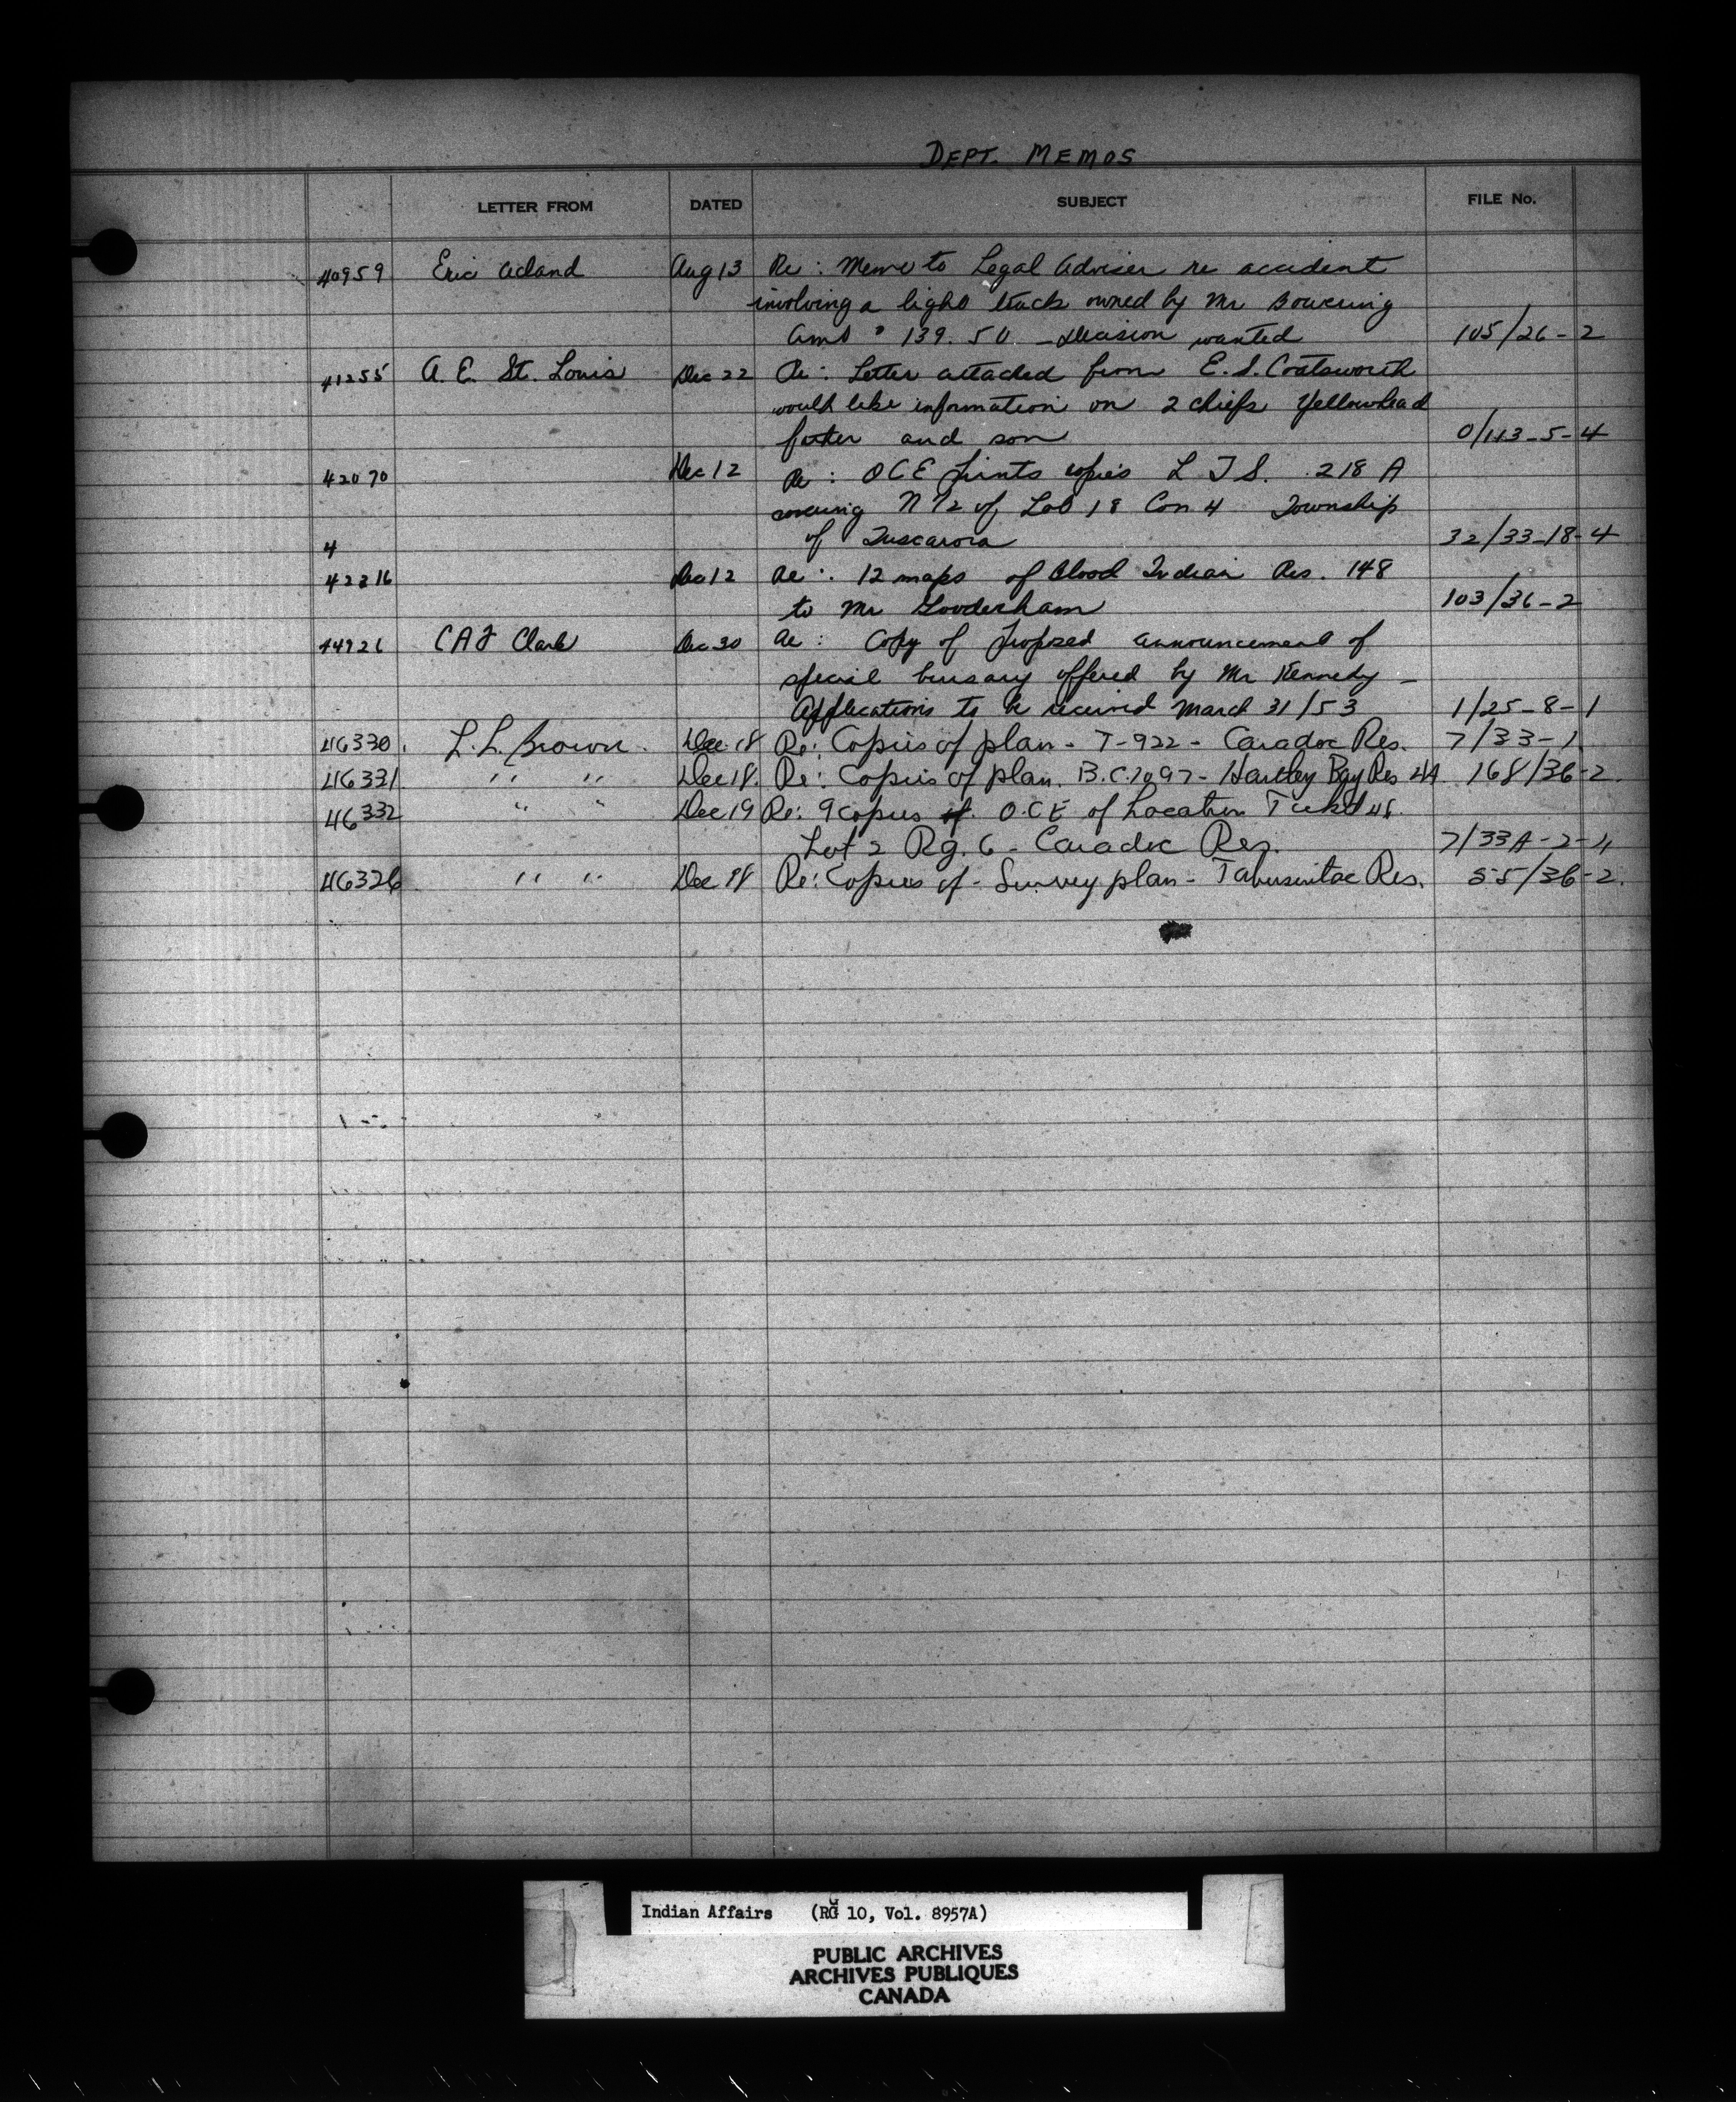 DEPT. MEMOS
LETTER FROM DATED SUBJECT FILE No.
40959 Eric Acland Aug 13 Re: Memo to Legal Adviser re accident
involving a light truck owned by Mr Bowering
Amt $ 139.50 - Decision wanted 105/26-2
41255 A. E. St. Louis Dec 22 Re: Letter attached from E. S. Coatsworth
would like information on 2 chiefs Yellowhead
father and son 0/113-5-4
42070 Dec 12 Re: OCE prints copies L T S. 218 A
covering N 1/2 of Lot 18 Con 4 Township
4 of Tuscarora 32/33-18-4
42316 Dec 12 Re: 12 maps of Blood Indian Res. 148
to Mr Gooderham 103/36-2
44926 CAF Clark Dec 30 Re: Copy of proposed announcement of
special bursary offered by Mr Kennedy -
Applications to be received March 31/53 1/25-8-1
46330. L. L. Brown. Dec. 18 Re: Copies of plan - T-922 - Caradoc Res. 7/33-1
46331 " " Dec 18. Re: Copies of plan. B.C. 1097 - Hartley Bay Res 4A. 168/36-2.
46332 " " Dec 19 Re: 9 copies of. O.C.E of Location Ticket 48.
Lot 2 Rg. 6 - Caradoc Res. 7/33A-2-4
46326. " " Dec 18 Re: Copies of - Survey plan - Tabusintac Res. 55/36-2.
Indian Affairs (RG 10, Vol. 8957A)
PUBLIC ARCHIVES
ARCHIVES PUBLIQUES
CANADA